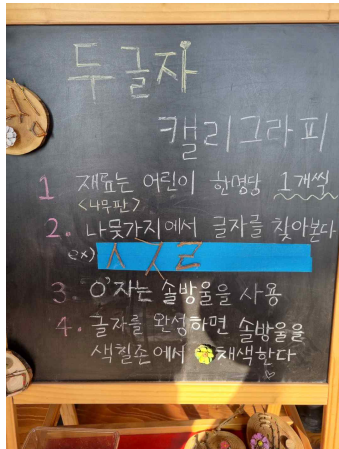 두글자
캘리그라피
1 재료는 어린이 한명당 1개씩
<나무판>
2. 나뭇가지에서 글자를 찾아본다
ex) ㅅ ㅅ ㄹ
3. 'ㅇ'자는 솔방울을 사용
4. 글자를 완성하면 솔방울을
색칠존에서 채색한다